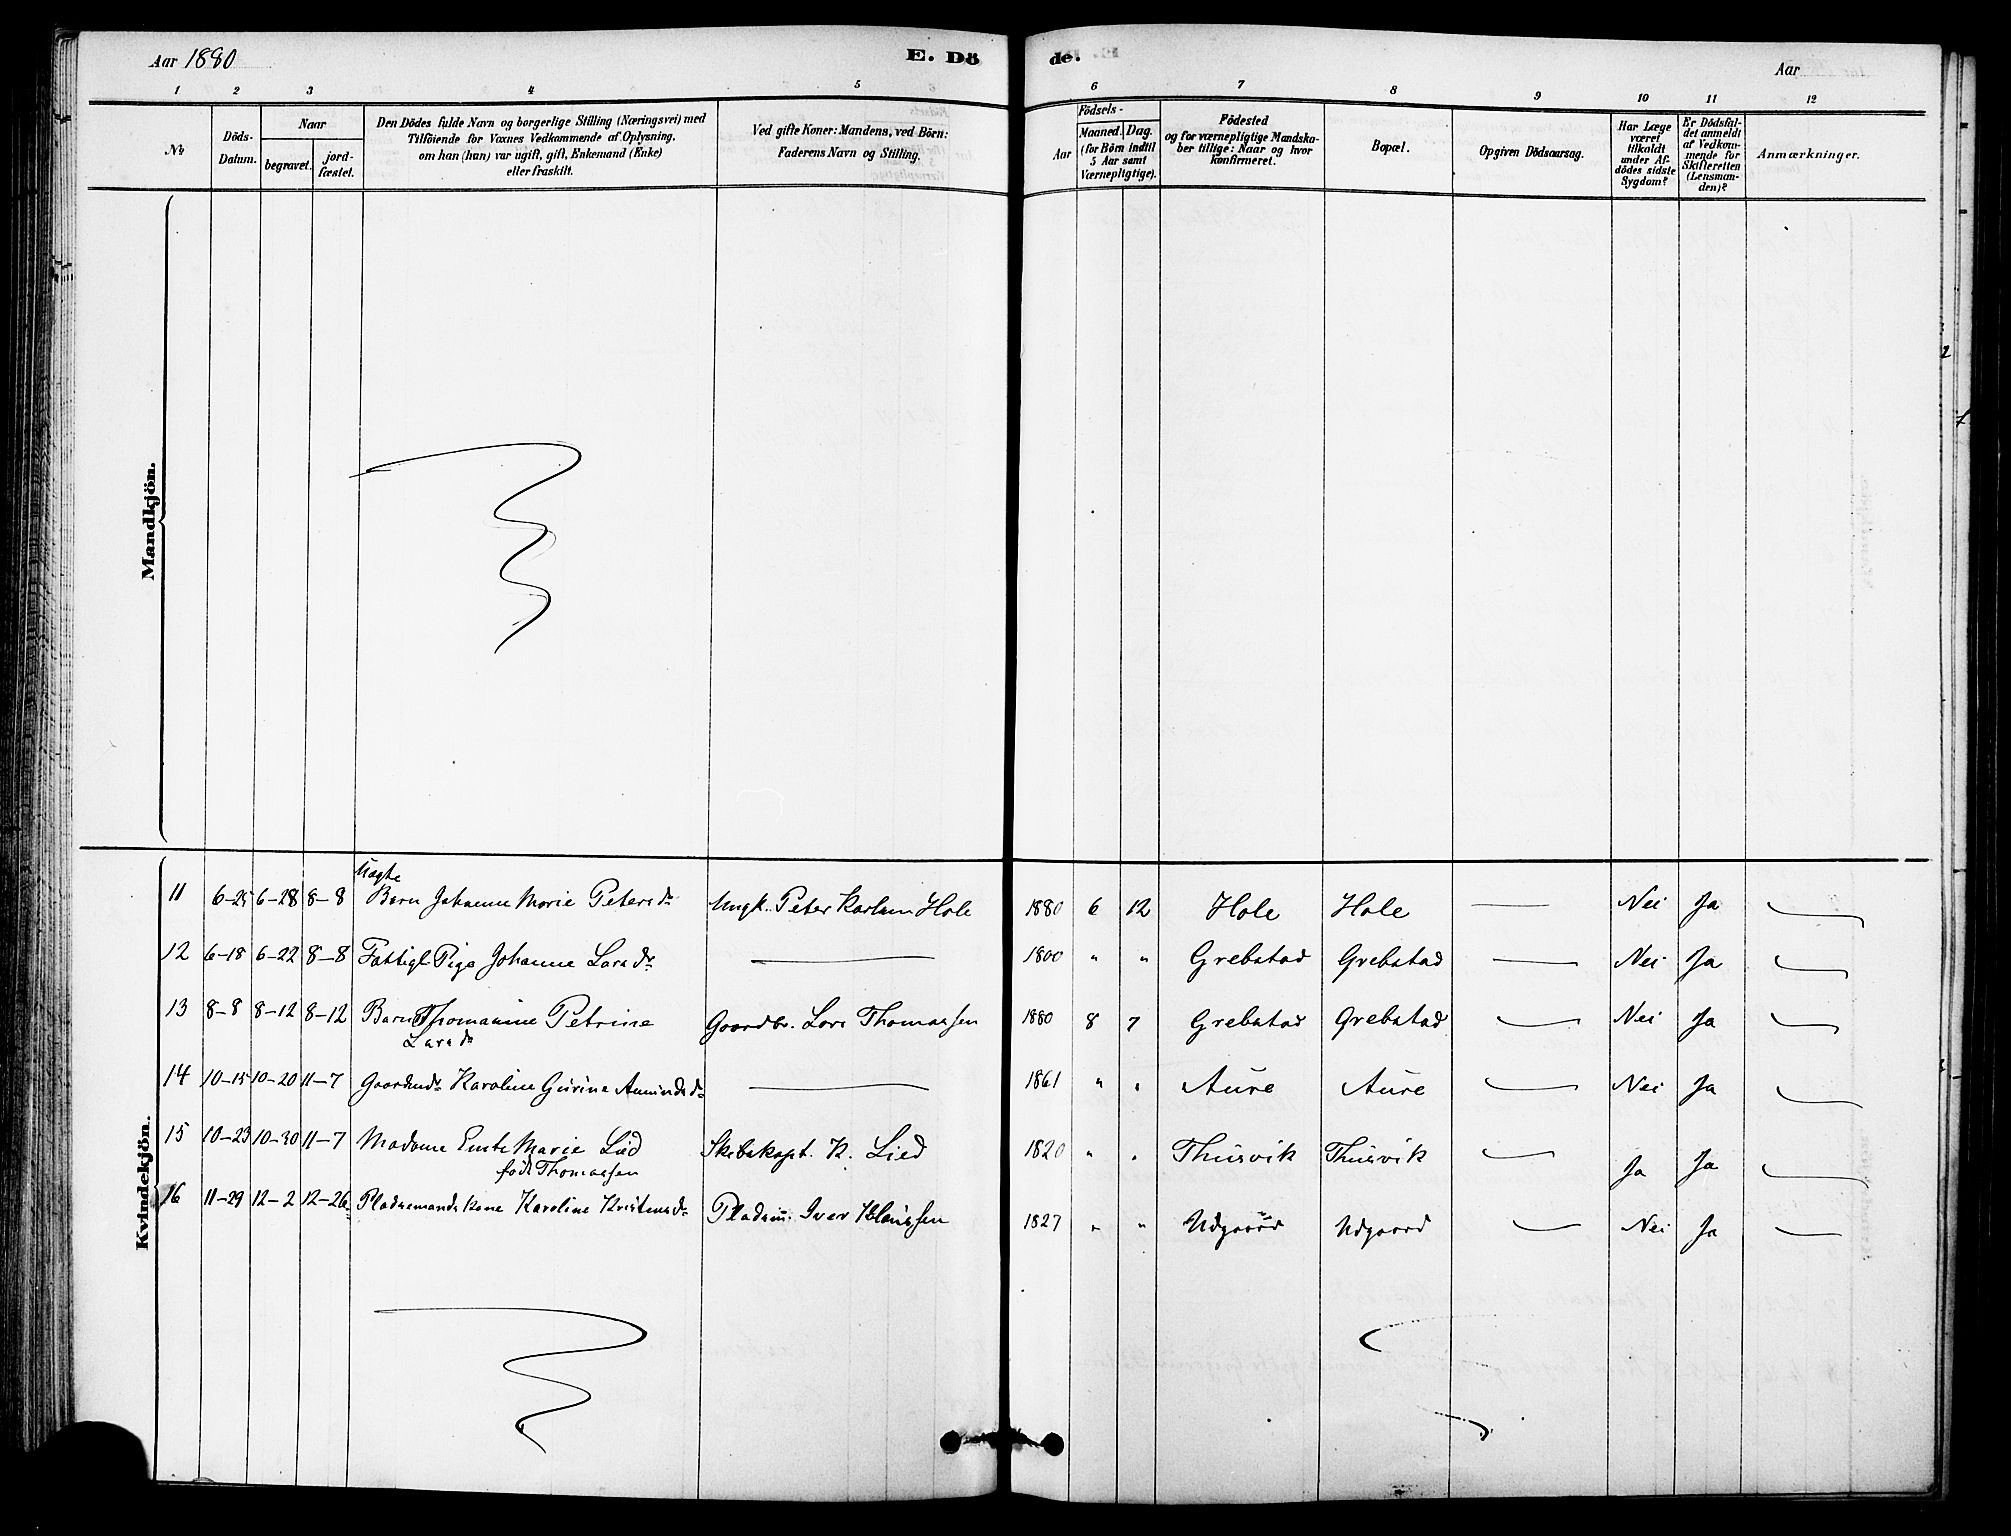 Aar 1880
E. Dö
de.
Aar
1 2 3 4 5 6 7 8 9 10 11 12
№
Döds-
Datum.
Naar
begravet.
jord-
fæstet.
Den Dödes fulde Navn og borgerlige Stilling (Næringsvei) med
Tilföiende for Voxnes Vedkommende af Oplysning,
om han (hun) var ugift, gift, Enkemand (Enke)
eller fraskilt.
Ved gifte Koner: Mandens, ved Börn:
Faderens Navn og Stilling.
Födsels-
Aar
Maaned.
Dag.
(for Börn indtil
5 Aar samt
Værnepligtige).
Födested
og for værnepligtige Mandska-
ber tillige: Naar og hvor
konfirmeret.
Bopæl.
Opgiven Dödsaarsag.
Har Læge
været
tilkaldt
under Af-
dödes sidste
Sygdom?
Er Dödsfal-
det anmeldt
af Vedkom-
mende for
Skifteretten
(Lensman-
den)?
Anmærkninger.
Mandkjön.
Kvindekjön.
Uægte
11 6-25 6-28 8-8 Barn Johanne Marie Petersd. Ungk. Peter Karlsen Hole 1880 6 12 Hole Hole — Nei Ja —
12 6-18 6-22 8-8 Fattigl. Pige Johanne Larsd. — 1800 " " Grebstad Grebstad — Nei Ja —
13 8-8 8-12 8-12 Barn Thomasine Petrine Gaardbr. Lars Thomassen 1880 8 7 Grebstad Grebstad — Nei Ja —
Larsd.
14 10-15 10-20 11-7 Gaardmd. Karoline Gurine Amundsd. — 1861 " " Aure Aure — Nei Ja —
15 10-23 10-30 11-7 Madame Marie Lied Skibskapt. K. Lied 1820 " " Thusvik Thusvik — Ja Ja —
född Thomassen
16 11-29 12-2 12-26 Pladsemands Kone Karoline Kristensd. Pladsm. Iver Klausen 1827 " " Udgaard Udgaard — Nei Ja —